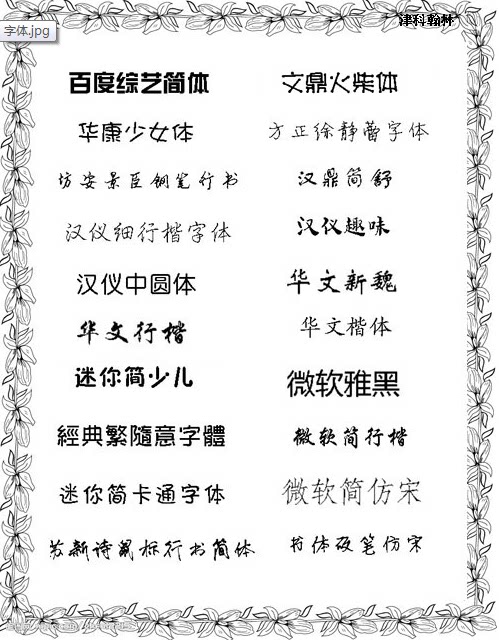 津科翰林
字体.jpg
百度综艺简体 文鼎火柴体
华康少女体 方正徐静蕾字体
坊安景臣钢笔行书 汉鼎简舒
汉仪细行楷字体 汉仪趣味
汉仪中圆体 华文新魏
华文行楷 华文楷体
迷你简少儿 微软雅黑
經典繁隨意字體 微软简行楷
迷你简卡通字体 微软简仿宋
苏新诗鼠标行书简体 书体硬笔仿宋